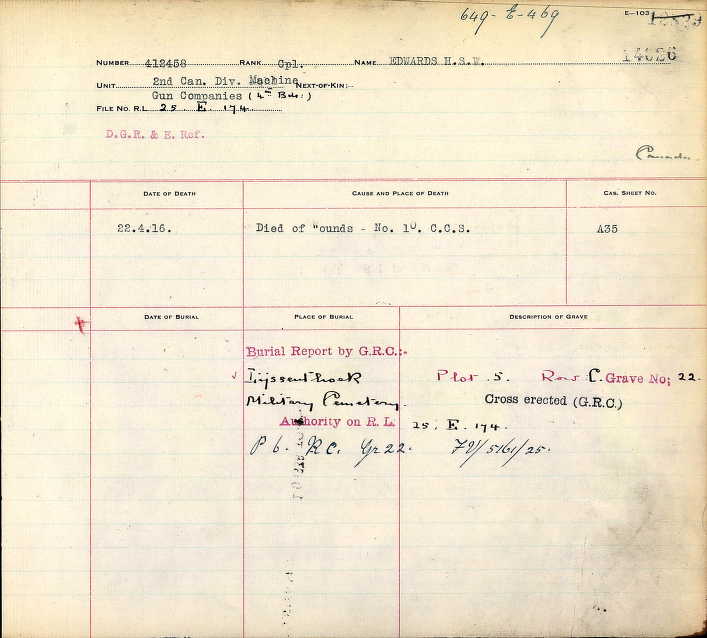 649-E-469
E-103
14026
NUMBER 412458 RANK Cpl. NAME EDWARDS H.S.W.
UNIT 2nd Can. Div. Machine NEXT-OF-KIN:-
Gun Companies (4th Bde.)
FILE NO. R.L 25. E. 174.
D.G.R. & E. Ref.
Canada
DATE OF DEATH CAUSE AND PLACE OF DEATH CAS. SHEET NO.
22.4.16. Died of "ounds - No. 10. C.C.S. A35
DATE OF BURIAL PLACE OF BURIAL DESCRIPTION OF GRAVE
Burial Report by G.R.C:-
Lijssenthoek Plot 5. Row C. Grave No; 22.
Military Cemetery. Cross erected (G.R.C.)
Authority on R.L. 25. E. 174.
P 6. R C. Gr 22. FV/5161/25.